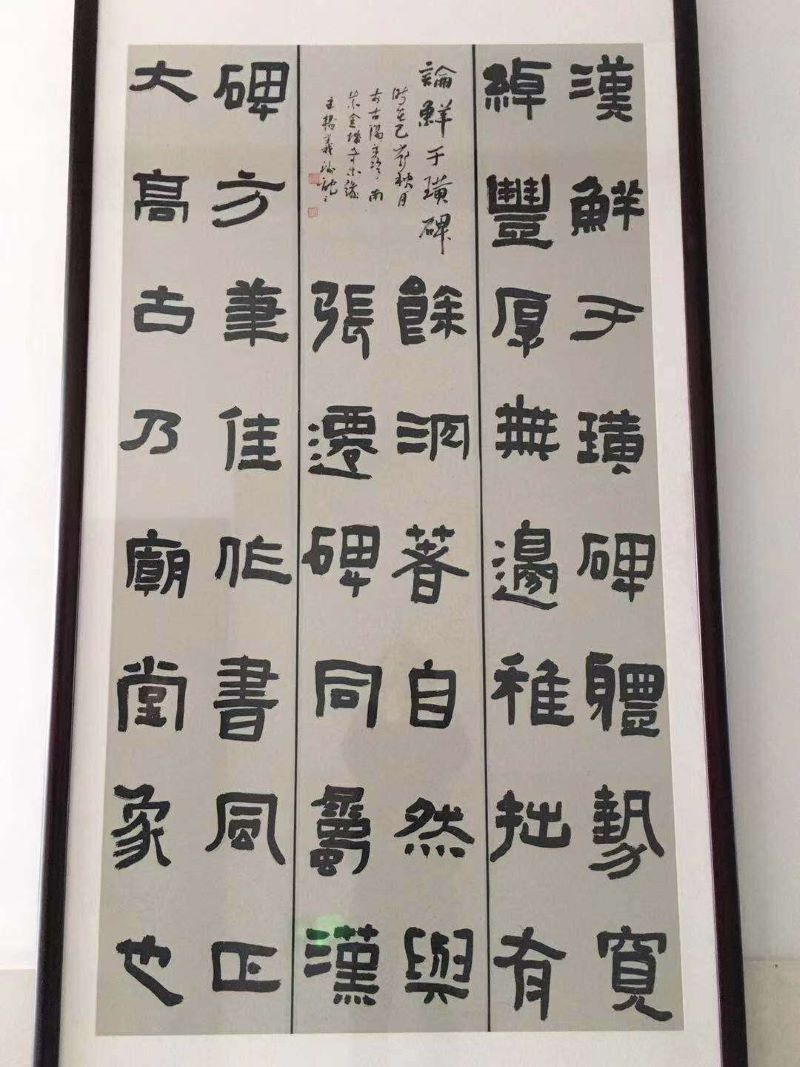 漢鮮于璜碑體勢寬
綽豐厚無邊稚拙有
餘著自然與
張遷碑同屬漢
碑方筆佳作書風正
大高古乃廟堂象也
論鮮于璜碑
時在己亥秋月
南
紫金
王義